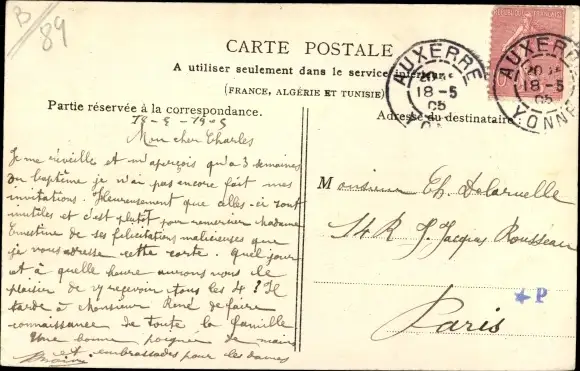 B/89
CARTE POSTALE
A utiliser seulement dans le service
(FRANCE, ALGÉRIE ET TUNISIE)
Partie réservée à la correspondance.
Adresse du destinataire
AUXERRE
20
18-5
05
YONNE
AUXERRE
20
18-5
05
YONNE
1905
Mon cher Charles
Je me réveille et m'aperçois qu'à 3 semaines
du baptême je n'ai pas encore fait mes
invitations. Heureusement que elles-ci sont
inutiles et c'est plutôt pour remercier Madame
Ernestine de ses félicitations malicieuses que
je vous adresse cette carte. Quel jour
et à quelle heure aurons nous le
plaisir de recevoir tous les 4? Il
tarde à Monsieur René de faire
connaissance de toute la famille
Une bonne poignée de mains
et embrassades pour les dames
Monsieur Ch. Delaruelle
14 R J. Jacques Rousseau
Paris
P